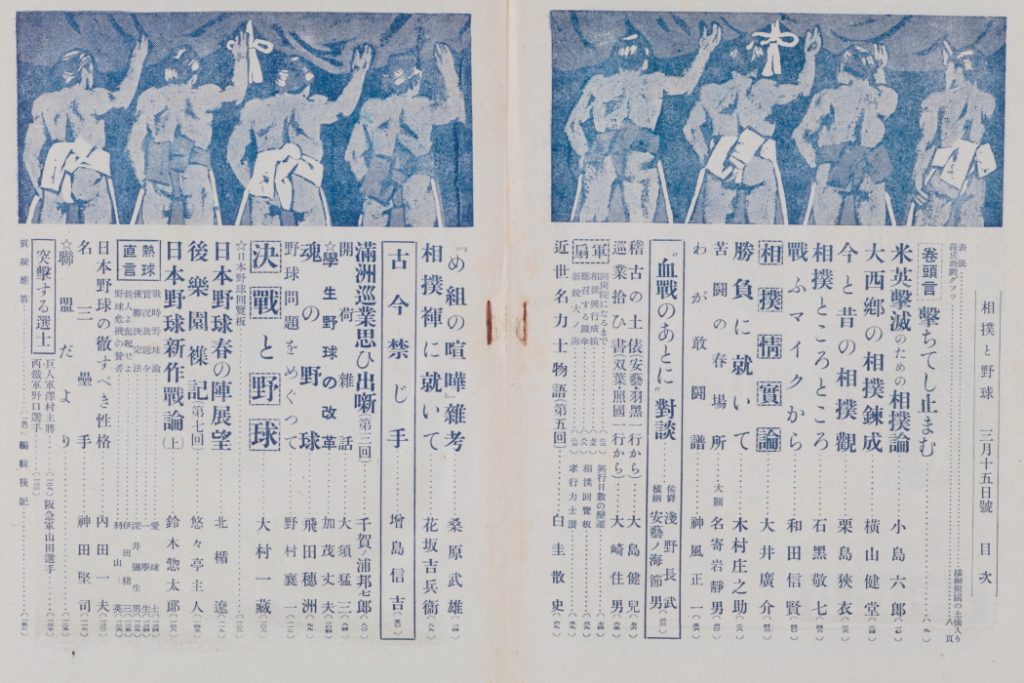 相撲と野球 三月十五日號 目次
巻頭言 擊ちてし止まむ
米英擊滅のための相撲論 小島六郎
大西鄕の相撲鍊成 橫山健堂
今と昔の相撲觀 栗島狹衣
相撲ところところ 石黑敬七
戰ふマイクから 和田信賢
相撲情實論 大井廣介
勝負に就いて 木村庄之助
苦鬪の春場所 大關 名寄岩靜男
わが敢鬪譜 神風正一
“血戰のあとに”對談 侯爵 淺野長武 橫綱 安藝ノ海節男
稽古の土俵(安藝・羽黑一行から) 大島健兒
巡業拾ひ書(双葉・照國一行から) 大崎住男
軍扇
相撲回覽板
孝行力士譜
近世名力士物語(第五回) 白圭散史
『め組の喧嘩』雜考 桑原武雄
相撲褌に就いて 花坂吉兵衞
古今禁じ手 增島信吉
滿洲巡業思ひ出噺(第三回) 千賀ノ浦邦七郎
開荷雜話 大須猛三
☆學生野球の改革 加茂丈夫
魂の野球 飛田穗洲
野球問題をめぐつて 野村襄一
決戰と野球 大村一藏
☆日本野球回覽板
日本野球春の陣展望 北楯遼
後樂園襍記(第七回) 悠々亭主人
日本野球新作戰論(上) 鈴木惣太郎
熱球直言
戰時野球論
日本野球の徹すべき性格 內田一夫
名三壘手 神田堅司
☆聯盟だより
突擊する選士 巨人軍澤村主將 阪急軍山田選手
西鐵軍野口選手
質疑應答 編輯後記